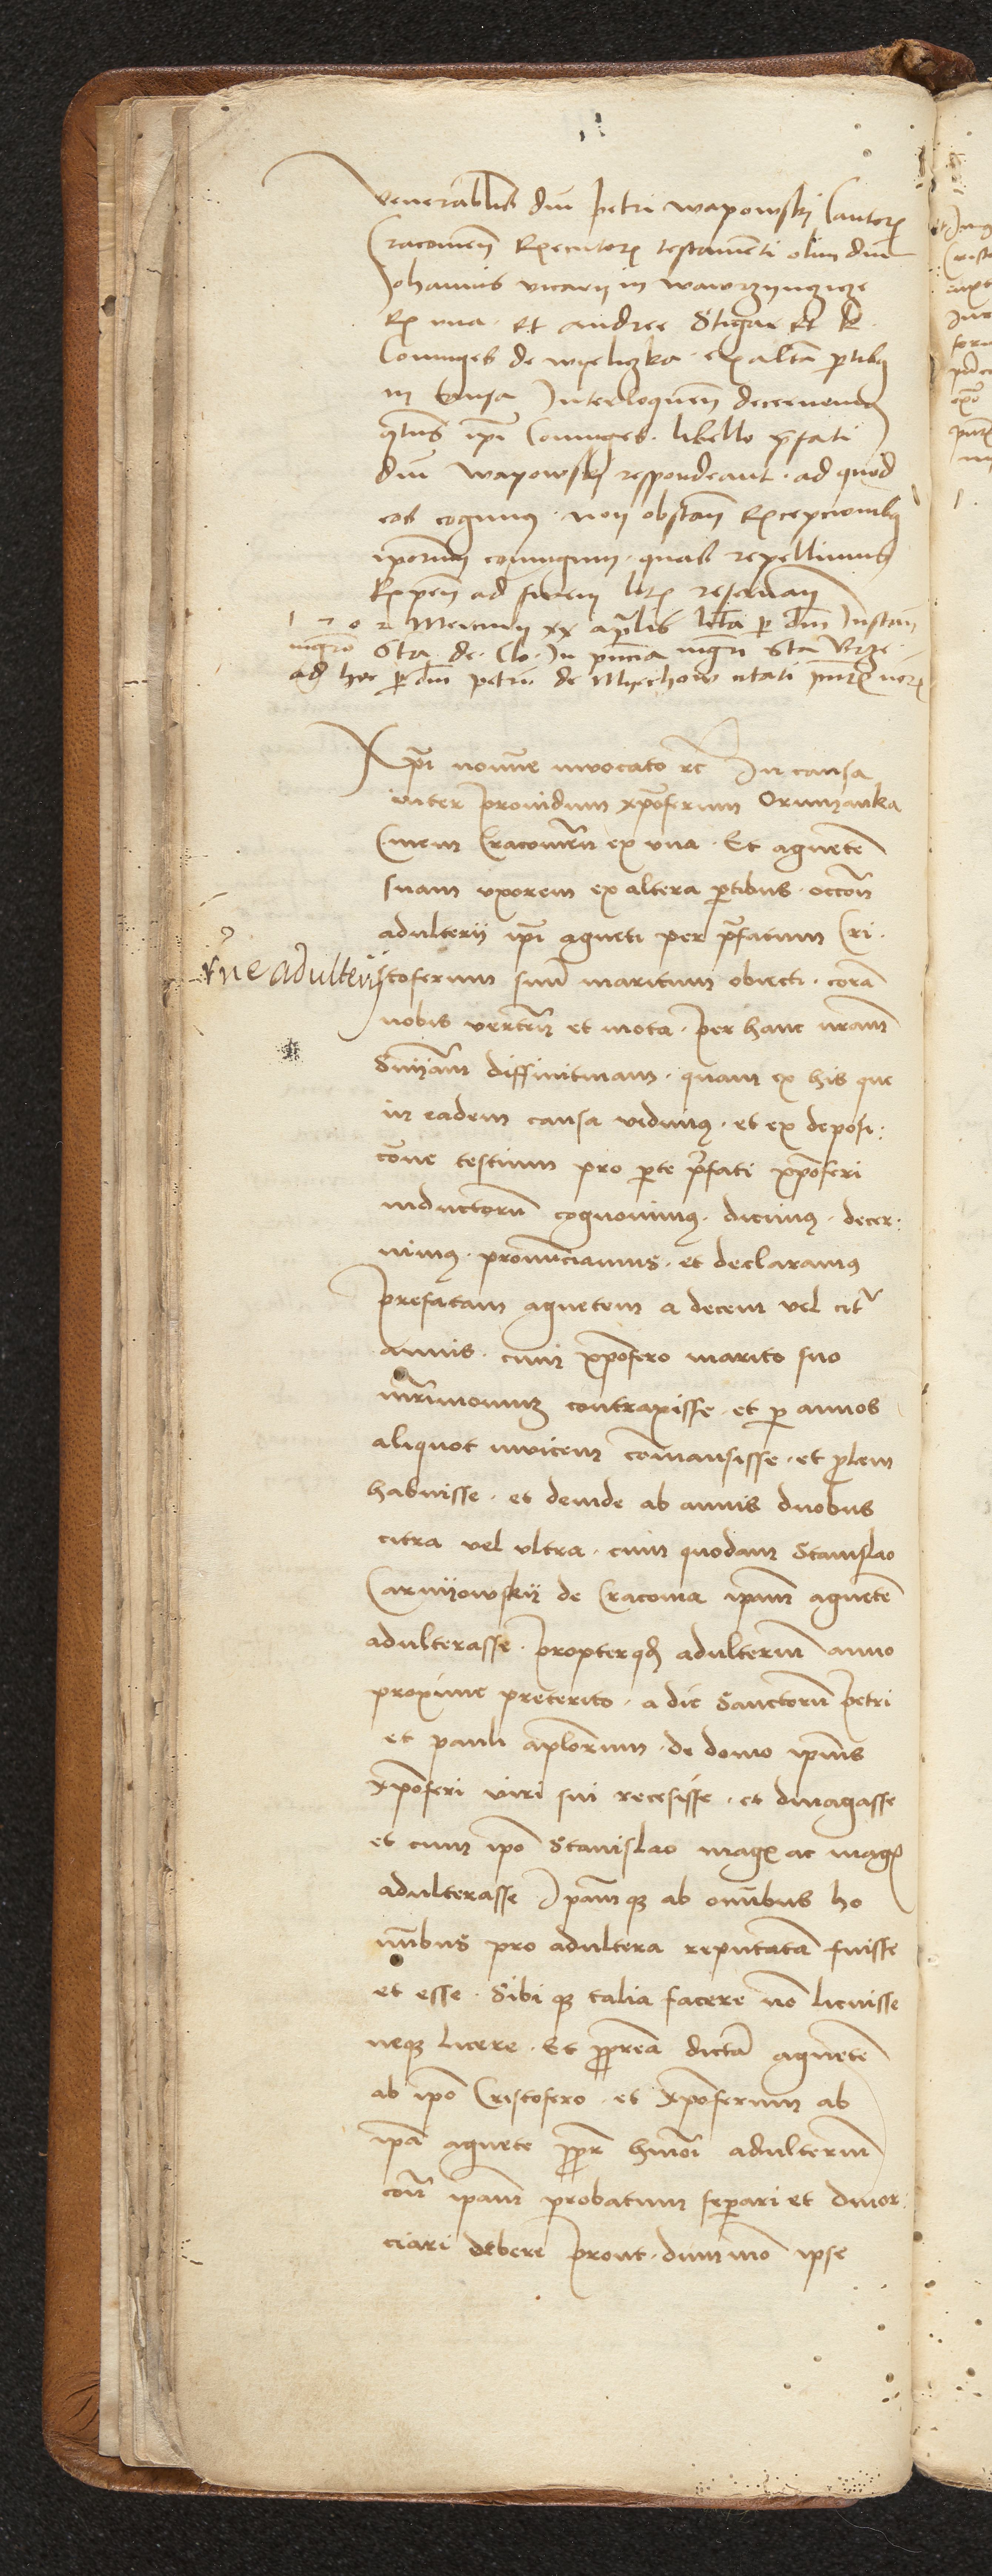 venerabilis dni petri wapowskj Cantoris
Cracouien Executoris testamenti olim dni
Johannis vicarij in wawrzynczicze
Ex vna · et andree Stigar et k
Coniuges de wyeliczka · ex altera ptibus
in causa Interloquen decernendo
qtus ipi Coniuges · libello pfati
dni wapowskj respondeant · ad quod
eos cogimus · non obstan Excepcionibus
iporum coniugum · quas repellimus
Expen ad finem litis reseruan
1 5 0 2 Mercurij xx aprilis lata p dnm Instan
mgrm Sta de · Clo · In pncia mgri Sta Brze
ad hec p dnm petru de Myechow citati

Xpi nomine inuocato rc In causa
inter prouidum xpoferum Orumanka
Ciuem Cracouien ex vna · Et agnete
suam vxorem ex altera ptibus · occon
adulterij ipi agneti per pfatum Cri·
stoferum suu maritum obiecti · cora
rone adulterij
nobis verten et mota · per hanc nram
Sniam diffinitiuam · quam ex his que
in eadem causa vidimus · et ex deposi:
cone testium pro pte prefati xpoferi
inductoru cognouimus · dicimus · decer:
nimus · pronunciamus · et declaramus
prefatam agnetem a decem vel citr
annis · cum xpofero marito suo
mrimonium contraxisse · et p annos
aliquot inuicem comansisse · et plem
habuisse · et deinde ab annis duobus
citra vel vltra · cum quodam Stanislao
Carnijowskij de Cracouia ipam agnete
adulterasse · propterqd adulterium anno
proxime preterito · a die Sanctoru petri
et pauli aplorum · de domo ipius
xpoferi viri sui recesisse · et diuagasse
et cum ipo Stanislao magis ac magis
adulterasse Ipamq ab omnibus ho
minibus pro adultera reputata fuisse
et esse · Sibi q talia facere no licuisse
neq licere · Et pprea dicta agnete
ab ipo Cristofero · et xpoferum ab
ipa agnete ppr hmoi adulterium
con ipam probatum separi et diuor
ciari debere prout · dummo ipse